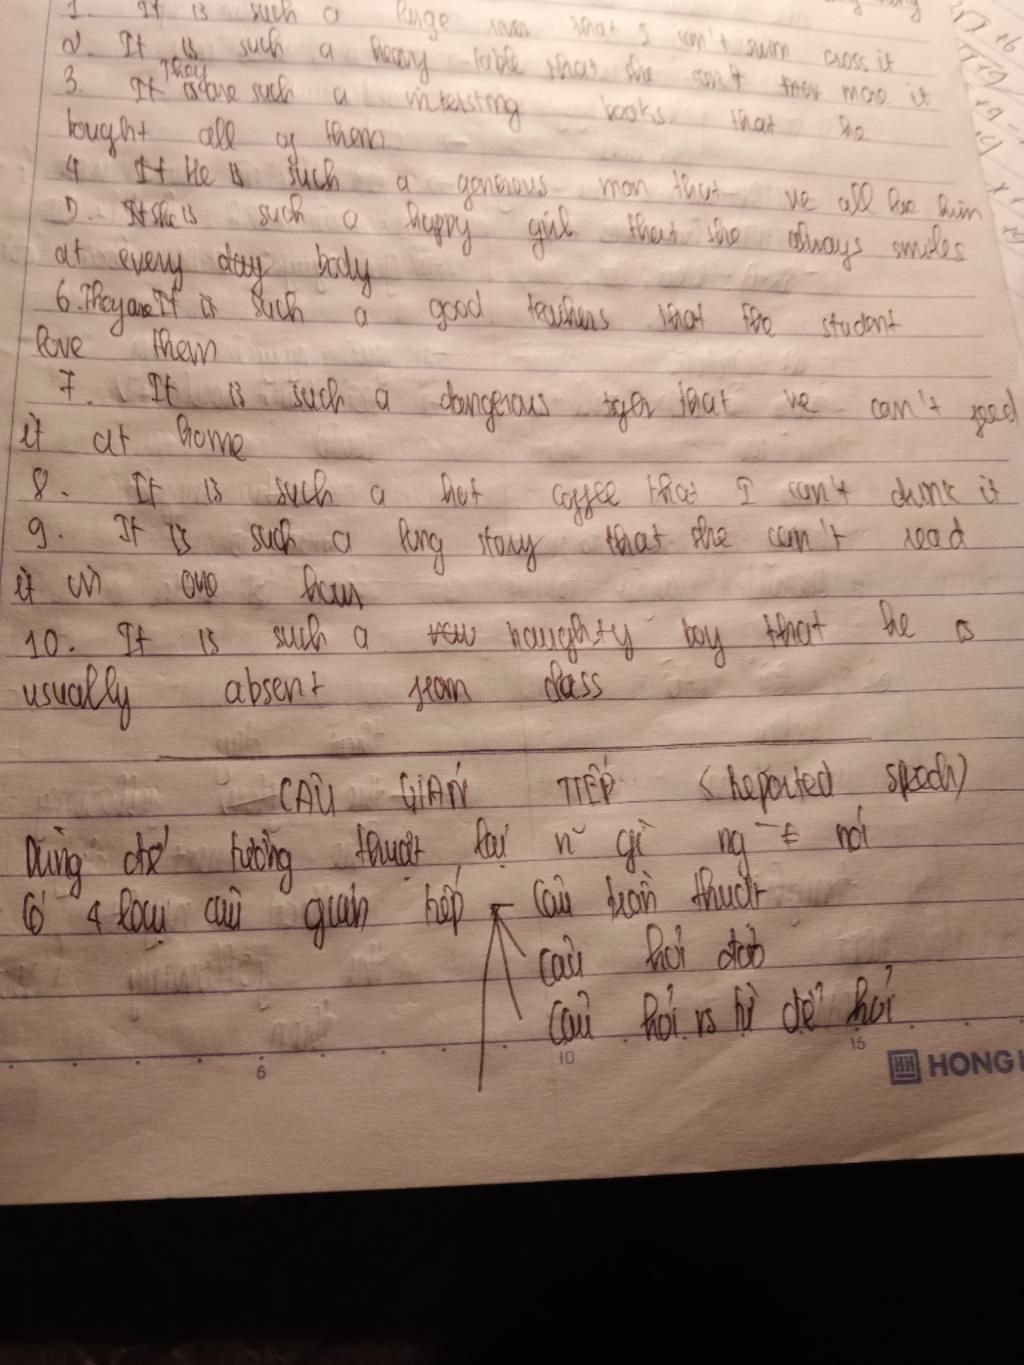 1. It is such a large river that I can't swim cross it
2. It is such a heavy table that she can't move it
3. They It is are such a intersting books that he
bought all of them
4 It He is such a generous man that we all love him
5. It She is such a happy girl that she always smiles
at every day body
6. They are It is such a good teachers that the student
love them
7. It is such a dangerous tiger that we can't feed
it at home
8. It is such a hot coffee that I can't drink it
9. It is such a long story that she can't read
it in one hour
10. It is such a naughty boy that he is
usually absent from class
CÂU GIÁN TIẾP (Reported speech)
Dùng để tường thuật lại n~ gì ng t nói
Có 4 loại câu gián tiếp câu trần thuật
câu hỏi đảo
câu hỏi vs từ để hỏi
5 10 15
HONG